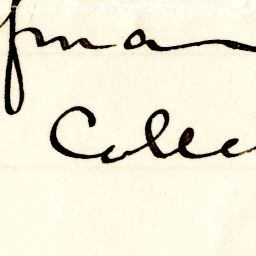 fman
Colle